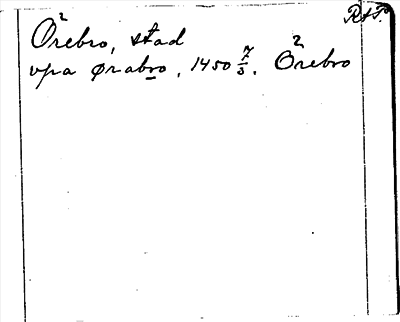 R A P.
Örebro, stad
vpa ørabro, 1450 7/5. Örebro